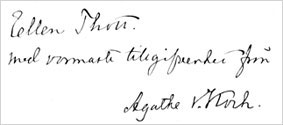 Ellen Thott.
med varmaste tillgifvenhet från
Agathe v. Koch.